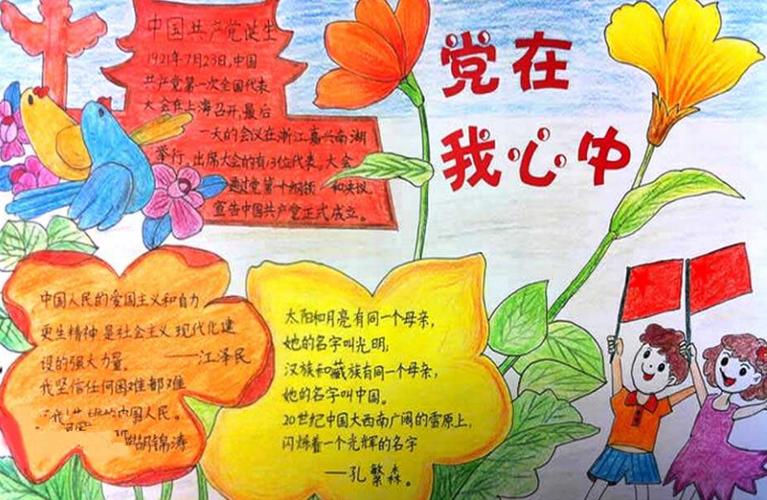 党在
我心中
中国共产党诞生
1921年7月23日,中国
共产党第一次全国代表
大会在上海召开,最后
一天的会议在浙江嘉兴南湖
举行。出席大会的有13位代表。大会
通过党第一个纲领和决议,
宣告中国共产党正式成立。
中国人民的爱国主义和自力
更生精神是社会主义现代化建
设的强大力量。——江泽民
我坚信任何困难都难
的中国人民。
胡锦涛
太阳和月亮有同一个母亲,
她的名字叫光明;
汉族和藏族有同一个母亲,
她的名字叫中国。
20世纪中国大西南广阔的雪原上,
闪烁着一个光辉的名字
——孔繁森。